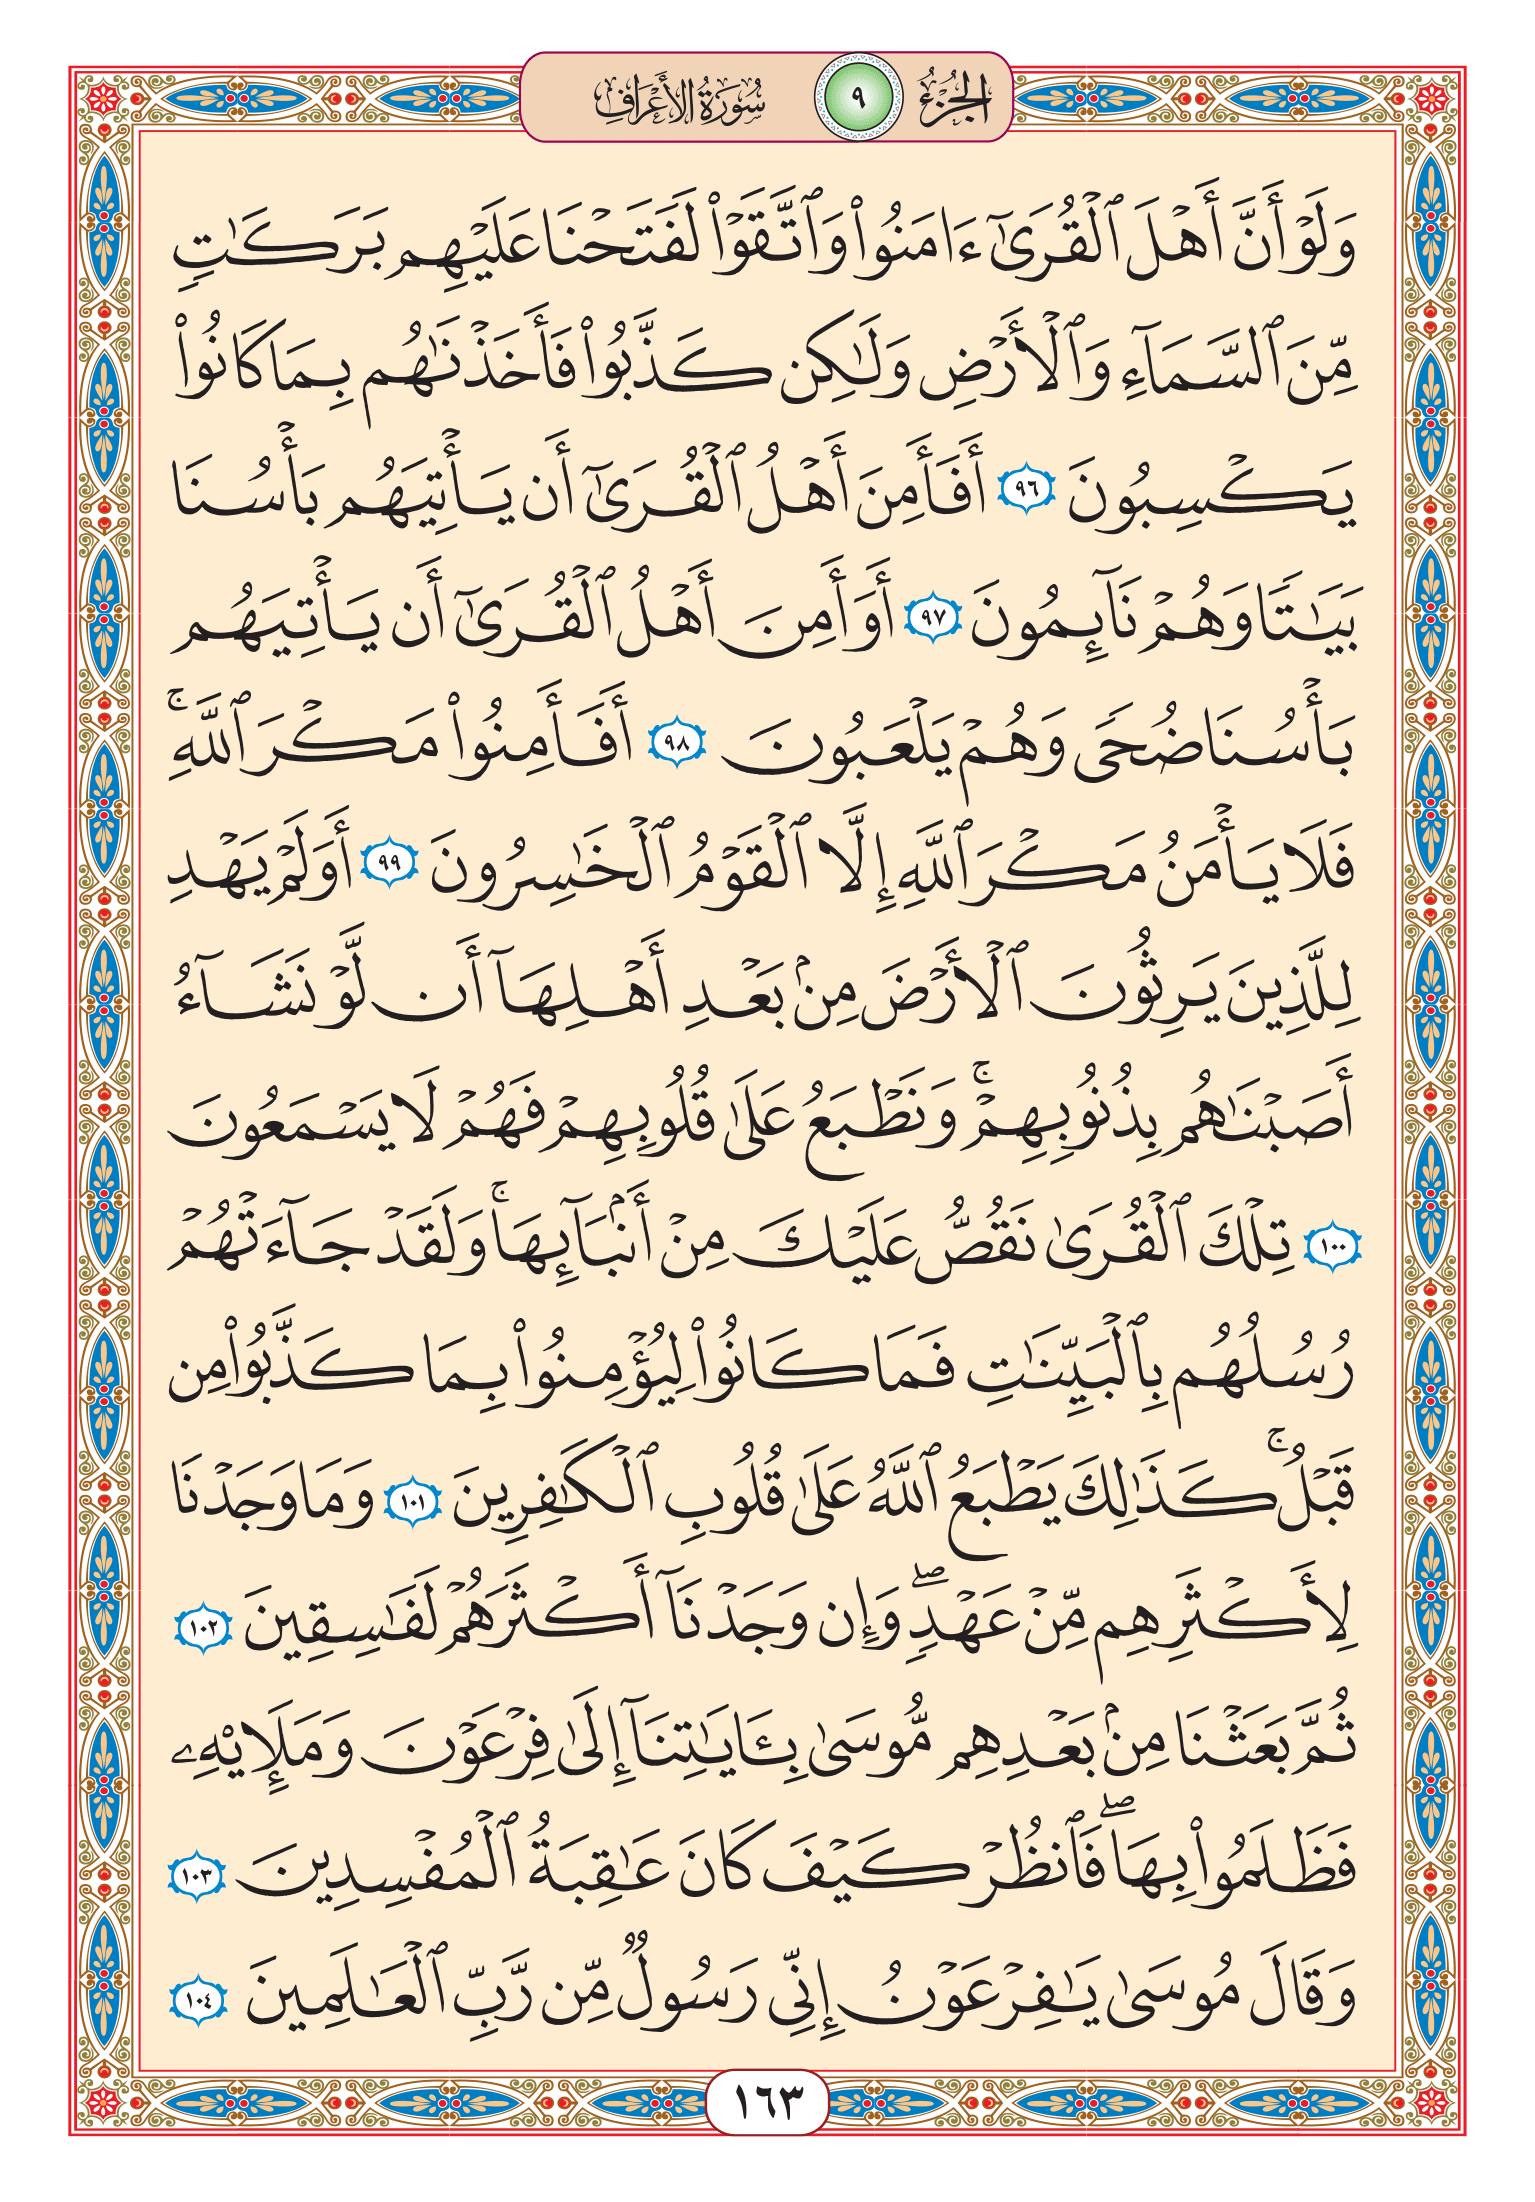 الجزء ٩ سورة الأعراف
وَلَوْ أَنَّ أَهْلَ ٱلْقُرَىٰٓ ءَامَنُوا۟ وَٱتَّقَوْا۟ لَفَتَحْنَا عَلَيْهِم بَرَكَٰتٍ
مِّنَ ٱلسَّمَآءِ وَٱلْأَرْضِ وَلَٰكِن كَذَّبُوا۟ فَأَخَذْنَٰهُم بِمَا كَانُوا۟
يَكْسِبُونَ ٩٦ أَفَأَمِنَ أَهْلُ ٱلْقُرَىٰٓ أَن يَأْتِيَهُم بَأْسُنَا
بَيَٰتًا وَهُمْ نَآئِمُونَ ٩٧ أَوَأَمِنَ أَهْلُ ٱلْقُرَىٰٓ أَن يَأْتِيَهُم
بَأْسُنَا ضُحًى وَهُمْ يَلْعَبُونَ ٩٨ أَفَأَمِنُوا۟ مَكْرَ ٱللَّهِ ۚ
فَلَا يَأْمَنُ مَكْرَ ٱللَّهِ إِلَّا ٱلْقَوْمُ ٱلْخَٰسِرُونَ ٩٩ أَوَلَمْ يَهْدِ
لِلَّذِينَ يَرِثُونَ ٱلْأَرْضَ مِنۢ بَعْدِ أَهْلِهَآ أَن لَّوْ نَشَآءُ
أَصَبْنَٰهُم بِذُنُوبِهِمْ ۚ وَنَطْبَعُ عَلَىٰ قُلُوبِهِمْ فَهُمْ لَا يَسْمَعُونَ
١٠٠ تِلْكَ ٱلْقُرَىٰ نَقُصُّ عَلَيْكَ مِنْ أَنۢبَآئِهَا ۚ وَلَقَدْ جَآءَتْهُمْ
رُسُلُهُم بِٱلْبَيِّنَٰتِ فَمَا كَانُوا۟ لِيُؤْمِنُوا۟ بِمَا كَذَّبُوا۟ مِن
قَبْلُ ۚ كَذَٰلِكَ يَطْبَعُ ٱللَّهُ عَلَىٰ قُلُوبِ ٱلْكَٰفِرِينَ ١٠١ وَمَا وَجَدْنَا
لِأَكْثَرِهِم مِّنْ عَهْدٍ ۖ وَإِن وَجَدْنَآ أَكْثَرَهُمْ لَفَٰسِقِينَ ١٠٢
ثُمَّ بَعَثْنَا مِنۢ بَعْدِهِم مُّوسَىٰ بِـَٔايَٰتِنَآ إِلَىٰ فِرْعَوْنَ وَمَلَإِي۟هِۦ
فَظَلَمُوا۟ بِهَا ۖ فَٱنظُرْ كَيْفَ كَانَ عَٰقِبَةُ ٱلْمُفْسِدِينَ ١٠٣
وَقَالَ مُوسَىٰ يَٰفِرْعَوْنُ إِنِّى رَسُولٌ مِّن رَّبِّ ٱلْعَٰلَمِينَ ١٠٤
١٦٣